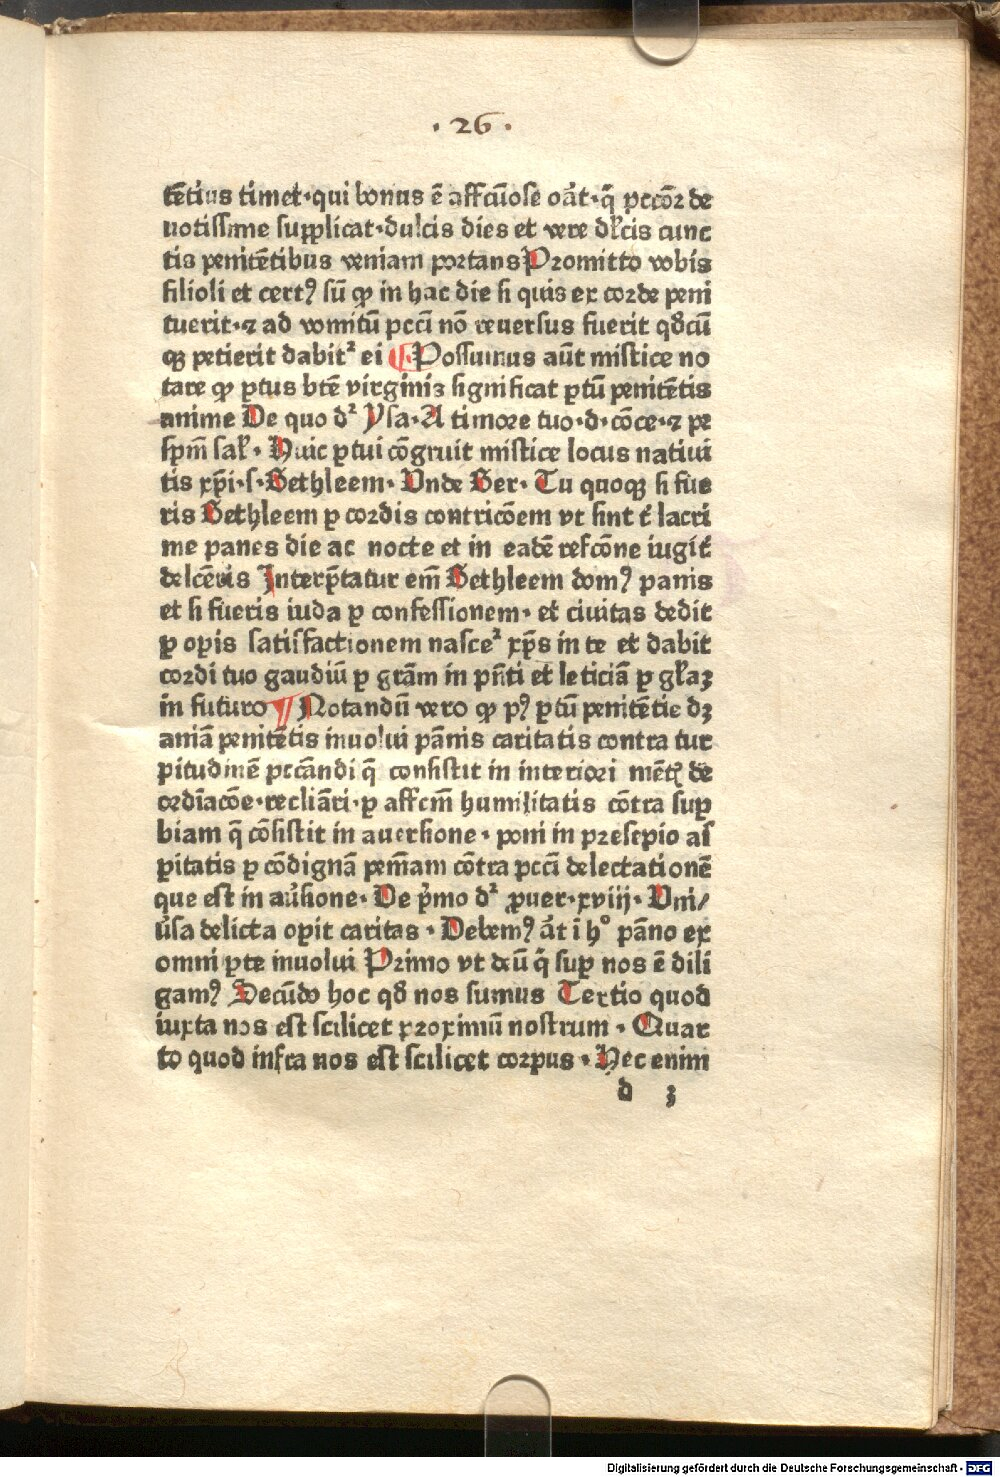 · 26 ·
tētius timet·qui bonus ē affcūose oāt·q̄ pccōꝛ de
uotissime supplicat·dulcis dies et vere dl̄cis cunc
tis penitētibus veniam poꝛtans Pꝛomitto vobis
filioli et certꝰ sū ꝙ in hac die si quis ex coꝛde peni
tuerit·⁊ ad vomitū pcci nō reuersus fuerit qđcū
qꝫ petierit dabitᷣ ei ¶ Possumus aūt mistice no
tare ꝙ ꝑtus btē virginiꝫ significat ꝑtū penitētis
anime De quo dᷣ Ysa·A timoꝛe tuo·d·cōce·⁊ pe
spm̄ sal̄· Huic ꝑtui cōgruit mistice locus natiui
tis xp̄i·s·Bethleem· Vnde Ber· Tu quoqꝫ si fue
ris Bethleem ꝑ coꝛdis contricōem vt sint t̄ lacri
me panes die ac nocte et in eadē refcōne iugit̄
delcēris Interp̄tatur em̄ Bethleem domꝰ panis
et si fueris iuda ꝑ confessionem· et ciuitas dedit
ꝑ opis satisfactionem nasceᷣ xp̄s in te et dabit
coꝛdi tuo gaudiū ꝑ grām in pn̄ti et leticiā ꝑ gl̄aꝫ
in futuro ¶ Notandū vero ꝙ pꝰ ꝑtū penitētie dꝫ
aniā penitētis inuolui pānis caritatis contra tur
pitudinē pccandi q̄ consistit in interioꝛi mētꝭ de
oꝛdīacōe·recliāri·ꝑ affcm̄ humilitatis cōtra suꝑ
biam q̄ cōsistit in auersione· poni in pꝛesepio as
ꝑitatis ꝑ cōdignā penn̄am cōtra pcci delectationē
que est in aūsione· De pᷤmo dᷣ ꝓuer·xviij· Vni/
ūsa delicta opit caritas· Debemꝰ āt ī hͦ pāno ex
omni ꝑte inuolui Pꝛimo vt deū q̄ suꝑ nos ē dili
gamꝰ Secūdo hoc qđ nos sumus Tertio quod
iuxta nos est scilicet pꝛoximū nostrum· Quar
to quod infra nos est scilicet coꝛpus· Hec enim
d 3
Digitalisierung gefördert durch die Deutsche Forschungsgemeinschaft - DFG